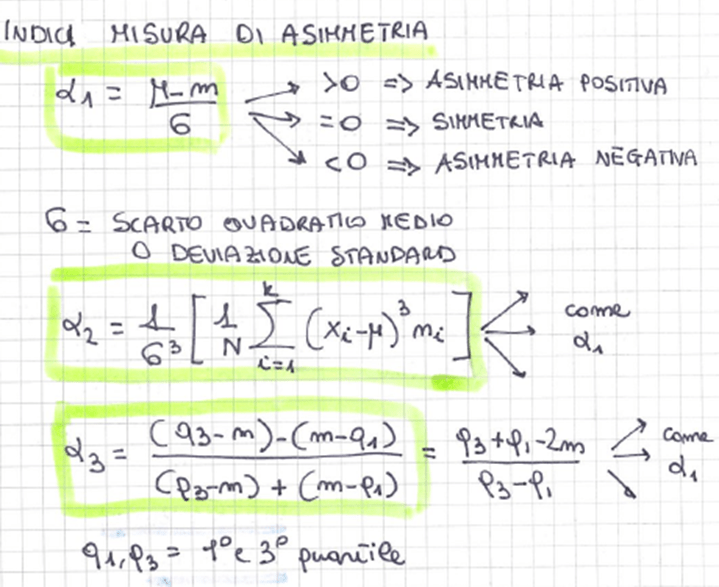 INDICI MISURA DI ASIMMETRIA
α1 = (μ - m) / σ
>0 => ASIMMETRIA POSITIVA
=0 => SIMMETRIA
<0 => ASIMMETRIA NEGATIVA
σ = SCARTO QUADRATICO MEDIO
O DEVIAZIONE STANDARD
α2 = 1/σ³ [ 1/N Σ_{i=1}^{k} (xi - μ)³ ni ] come α1
α3 = ((q3 - m) - (m - q1)) / ((q3 - m) + (m - q1)) = (q3 + q1 - 2m) / (q3 - q1) come α1
q1, q3 = 1° e 3° quartile